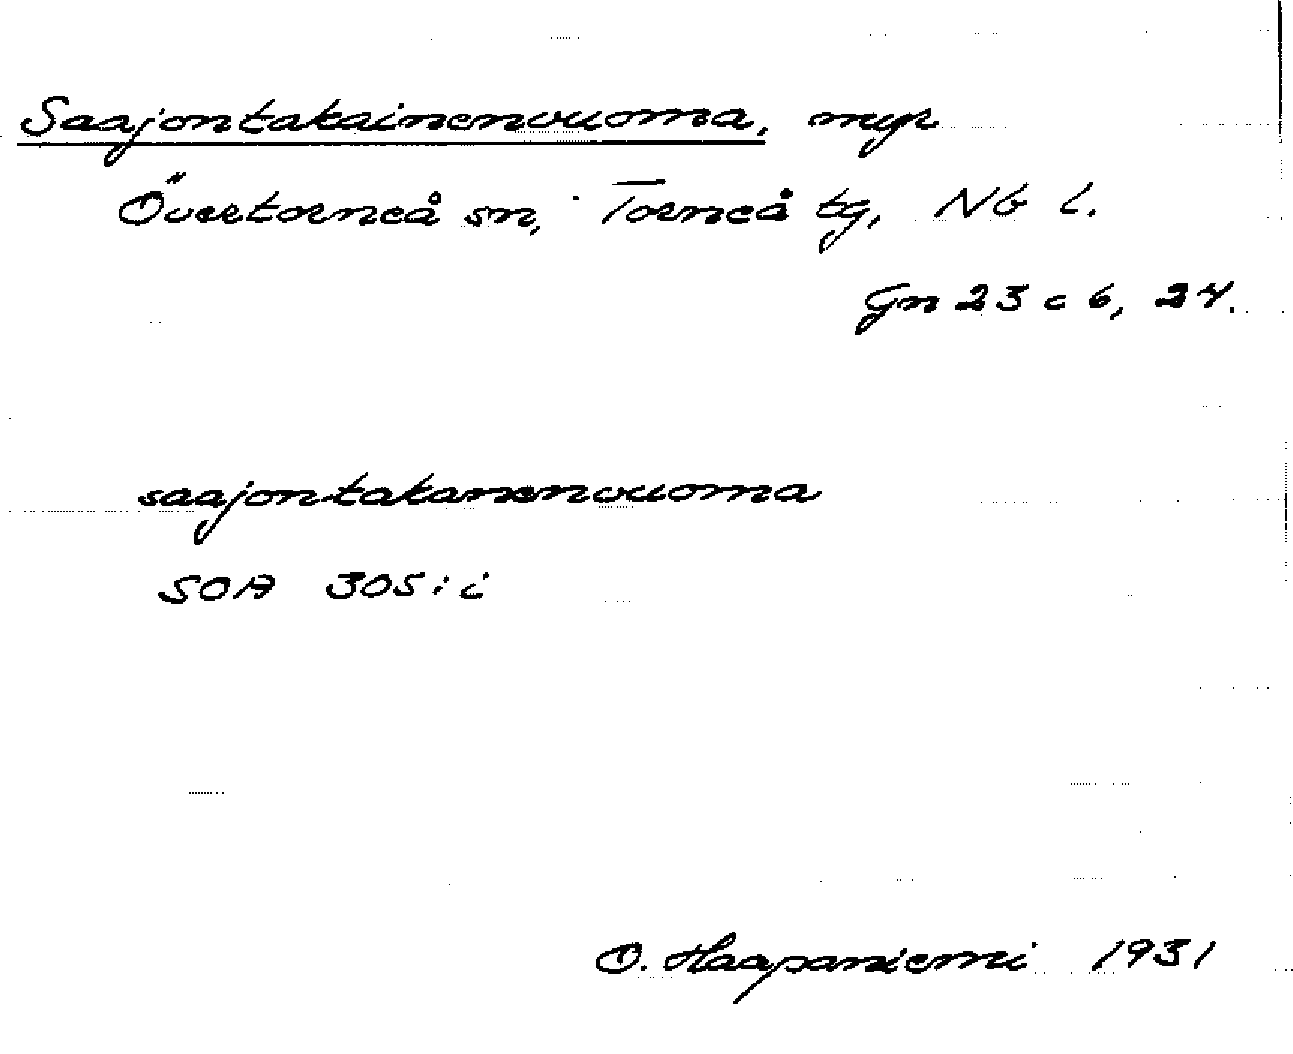 Saajontakainenvuoma, myr
Övertorneå sn, Torneå tg, Nb l.
Gn 23 c 6, 24.
saajontakanenvuoma
SOA 305: i
O. Haapaniemi 1931